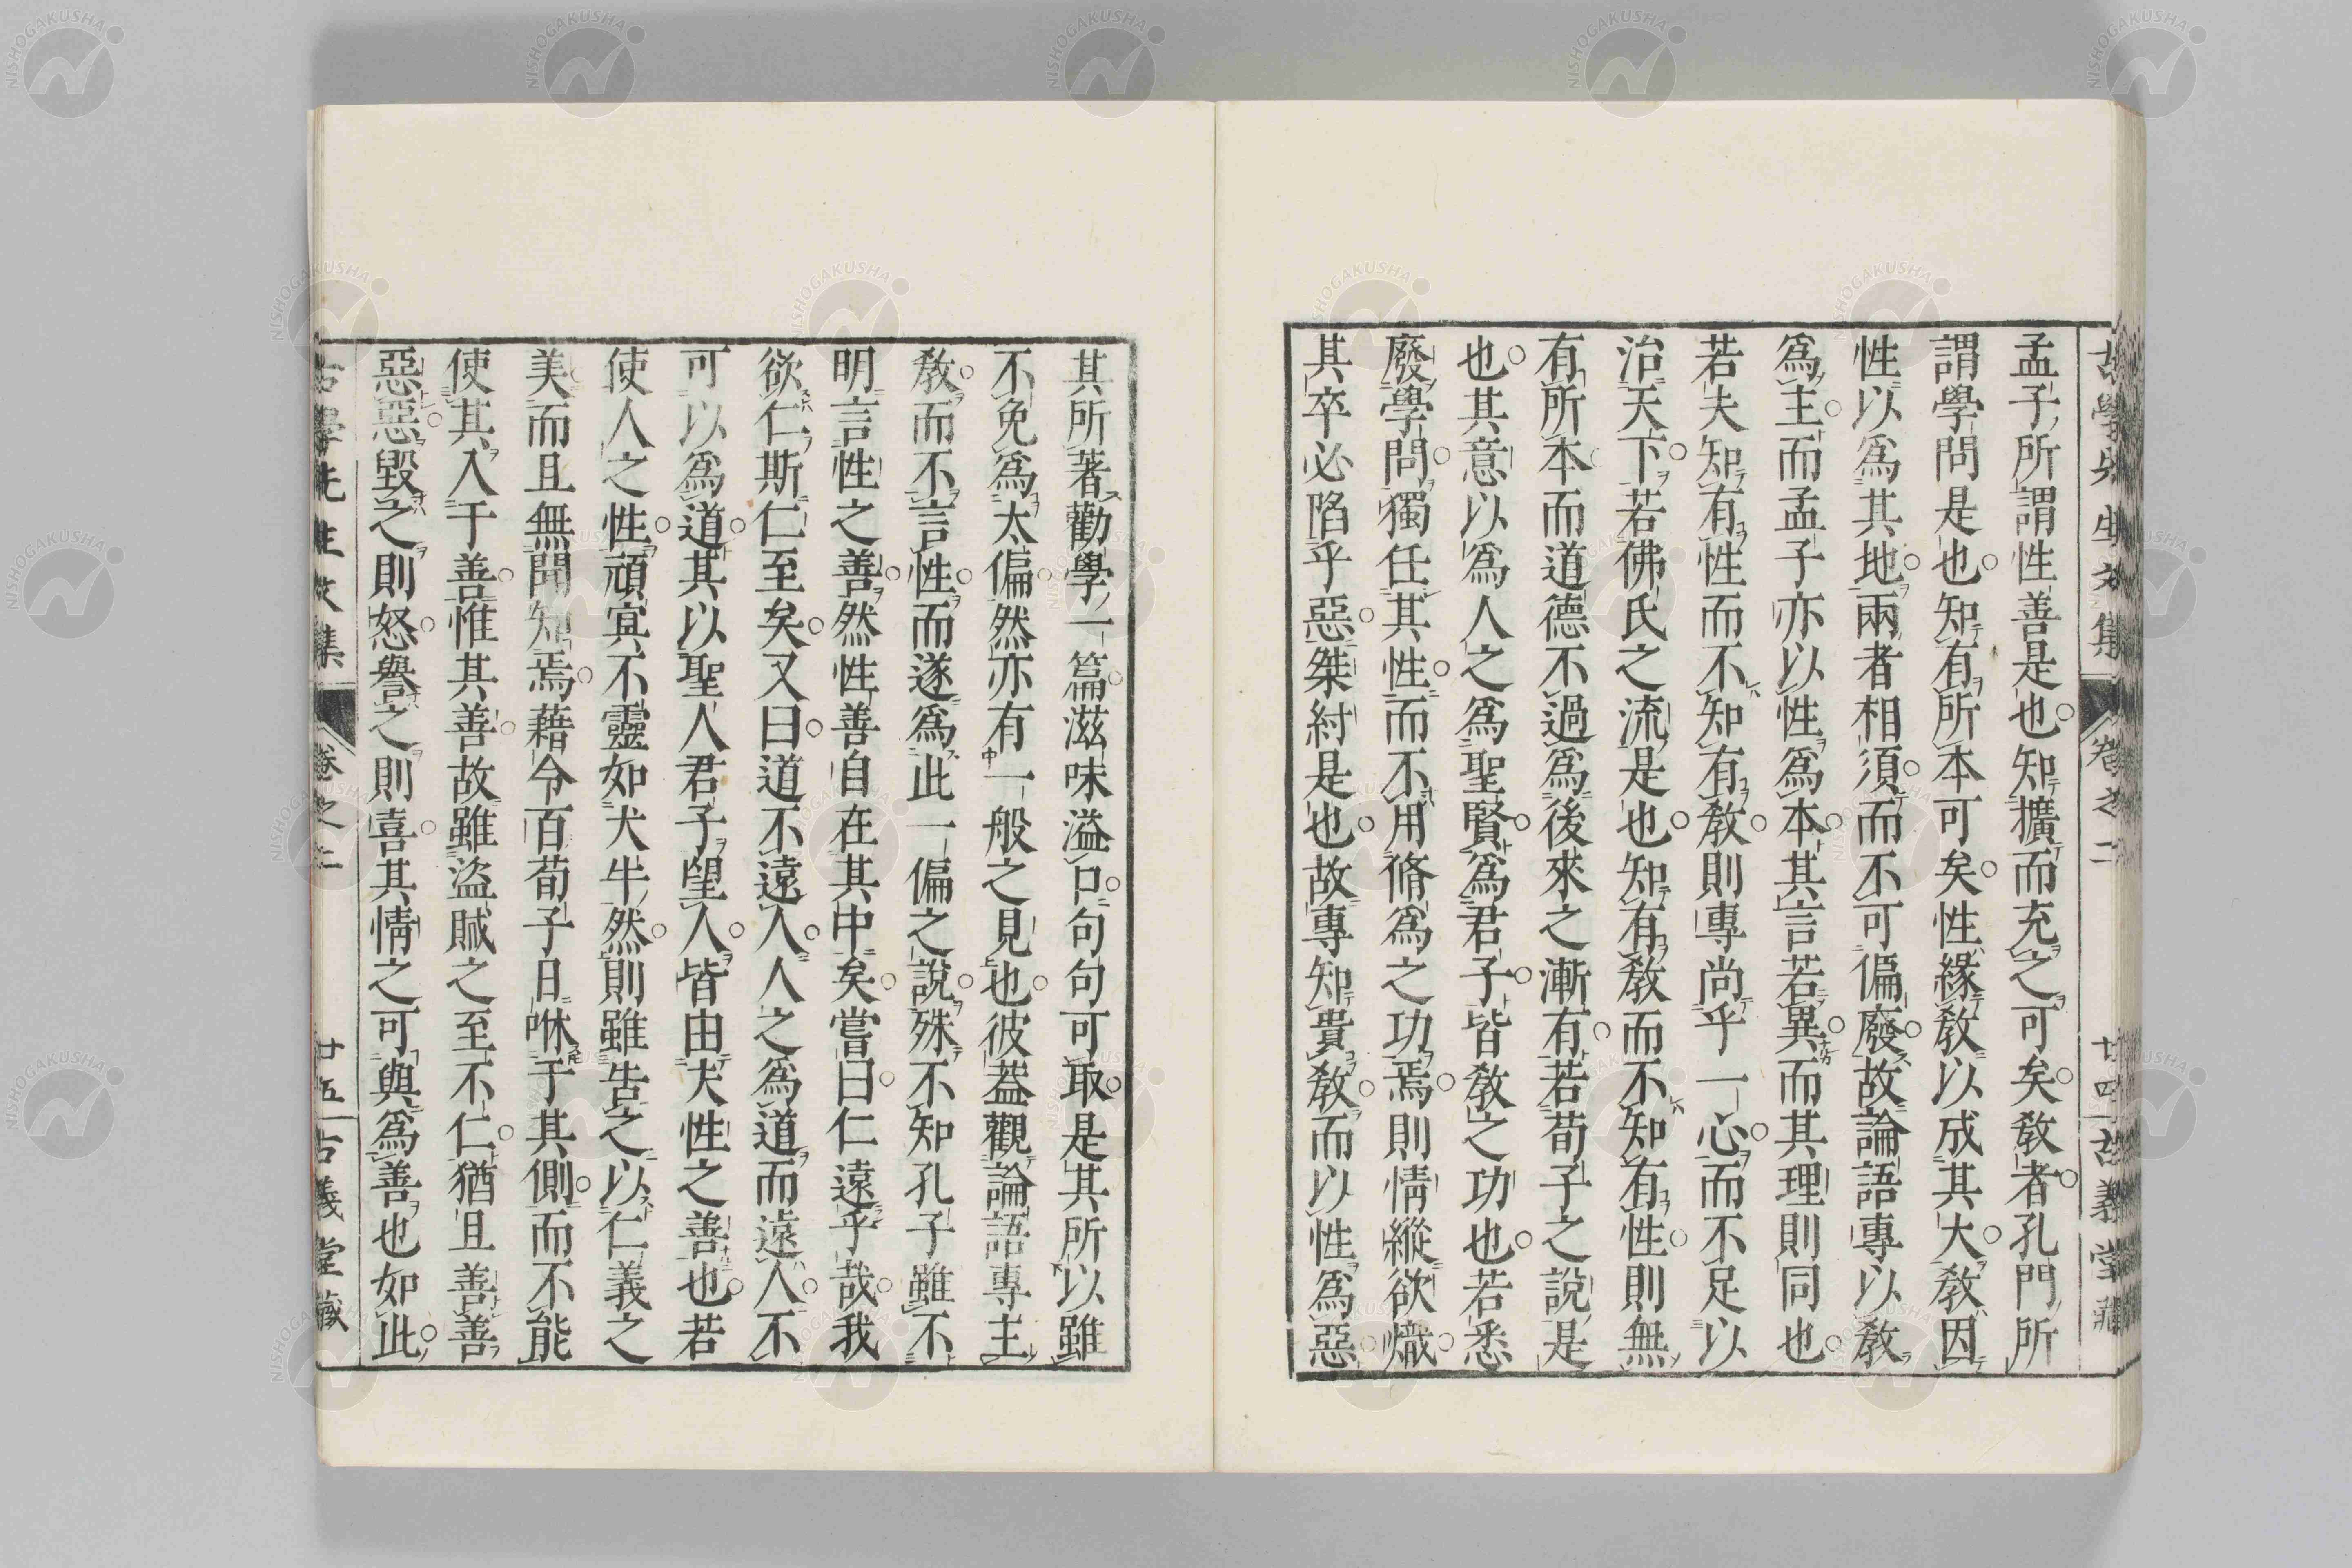 古學先生文集 卷之二 廿四 古義堂藏
孟子所謂性善是也知擴而充之可矣教者孔門所
謂學問是也知有所本可矣性緣教以成其大教因
性以爲其地兩者相須而不可偏廢故論語專以教
爲主而孟子亦以性爲本其言若異而其理則同也
若夫知有性而不知有教則專尚乎一心而不足以
治天下若佛氏之流是也知有教而不知有性則無
有所本而道德不過爲後來之漸有若荀子之說是
也其意以爲人之爲聖賢爲君子皆教之功也若悉
廢學問獨任其性而不用脩爲之功焉則情縱欲熾
其卒必陷乎惡桀紂是也故專知貴教而以性爲惡
其所著勸學一篇滋味溢口句句可取是其所以雖
不免爲太偏然亦有一般之見也彼蓋觀論語專主
教而不言性而遂爲此一偏之說殊不知孔子雖不
明言性之善然性善自在其中矣嘗曰仁遠乎哉我
欲仁斯仁至矣又曰道不遠人人之爲道而遠人不
可以爲道其以聖人君子望人皆由夫性之善也若
使人之性頑冥不靈如犬牛然則雖告之以仁義之
美而且無聞知焉藉令百荀子日咻于其側而不能
使其入于善惟其善故雖盜賊之至不仁猶且善善
惡惡毀之則怒譽之則喜其情之可與爲善也如此
古學先生文集 卷之二 廿五 古義堂藏